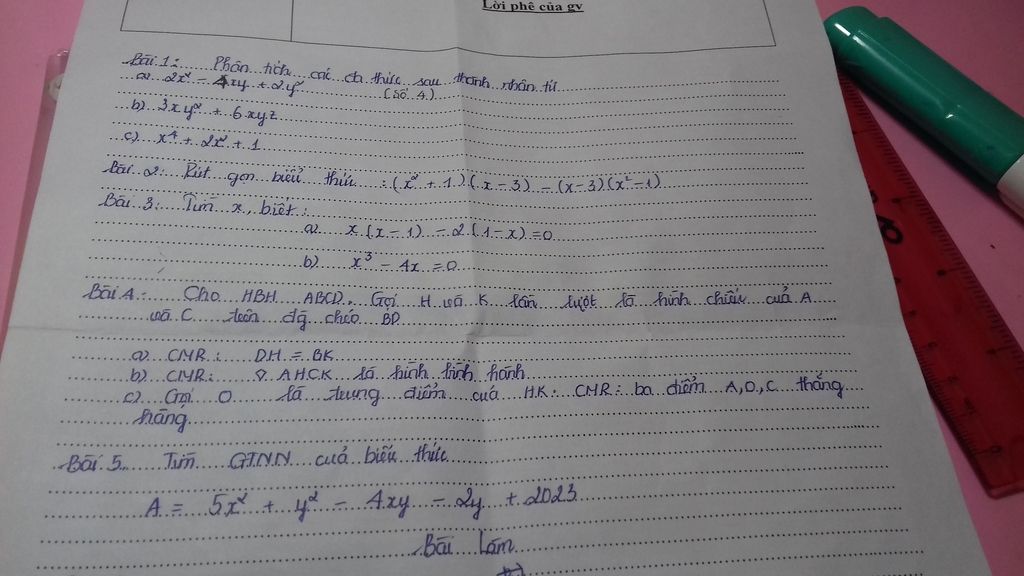 Lời phê của gv
Bài 1: Phân tích các đa thức sau thành nhân tử
a) 2x² - 4xy + 2y² (số 4)
b) 3xy² + 6xyz
c) x⁴ + 2x² + 1
Bài 2: Rút gọn biểu thức : (x² + 1)(x - 3) - (x-3)(x²-1)
Bài 3: Tìm x, biết:
a) x(x-1) - 2(1-x) = 0
b) x³ - 4x = 0
Bài 4: Cho HBH ABCD. Gọi H và K lần lượt là hình chiếu của A
và C trên đg chéo BD
a) CMR: DH = BK
b) CMR: ◊ AHCK là hình bình hành
c) Gọi O là trung điểm của HK. CMR: ba điểm A, O, C thẳng
hàng
Bài 5. Tìm GTNN của biểu thức
A = 5x² + y² - 4xy - 2y + 2023
Bài làm